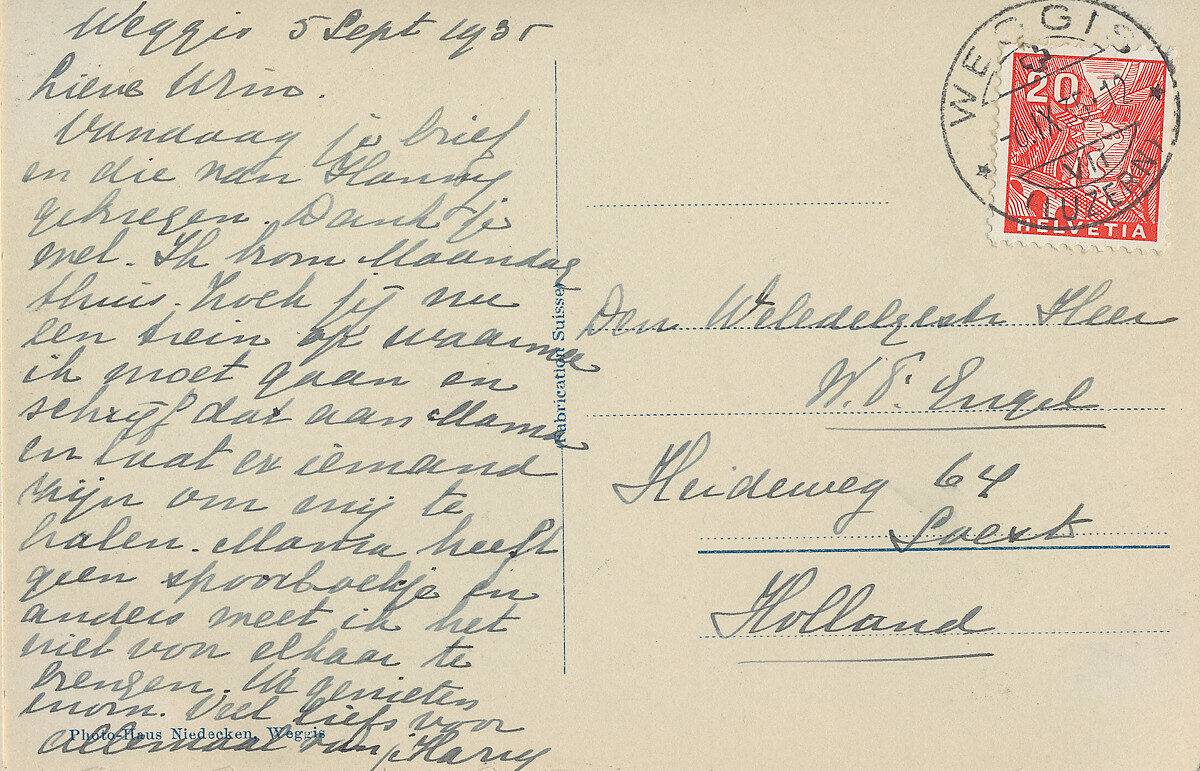 Weggis 5 Sept 1935
Lieve Wim.
Vandaag je brief
en die van Hanny
gekregen. Dank je
wel. Ik kom Maandag
thuis. Zoek jij nu
een trein op waarmee
ik moet gaan en
schrijf dat aan Mama
en laat er iemand
zijn om mij te
halen. Mama heeft
geen spoorboekje en
anders weet ik het
niet voor elkaar te
brengen. We genieten
enorm. Veel liefs voor
allemaal van Harry
Photo-Haus Niedecken, Weggis
Fabrication Suisse
WEGGIS
(LUZERN)
20
HELVETIA
Den Weledelgestr Heer
W. F. Engel
Heideweg 64
Soest
Holland